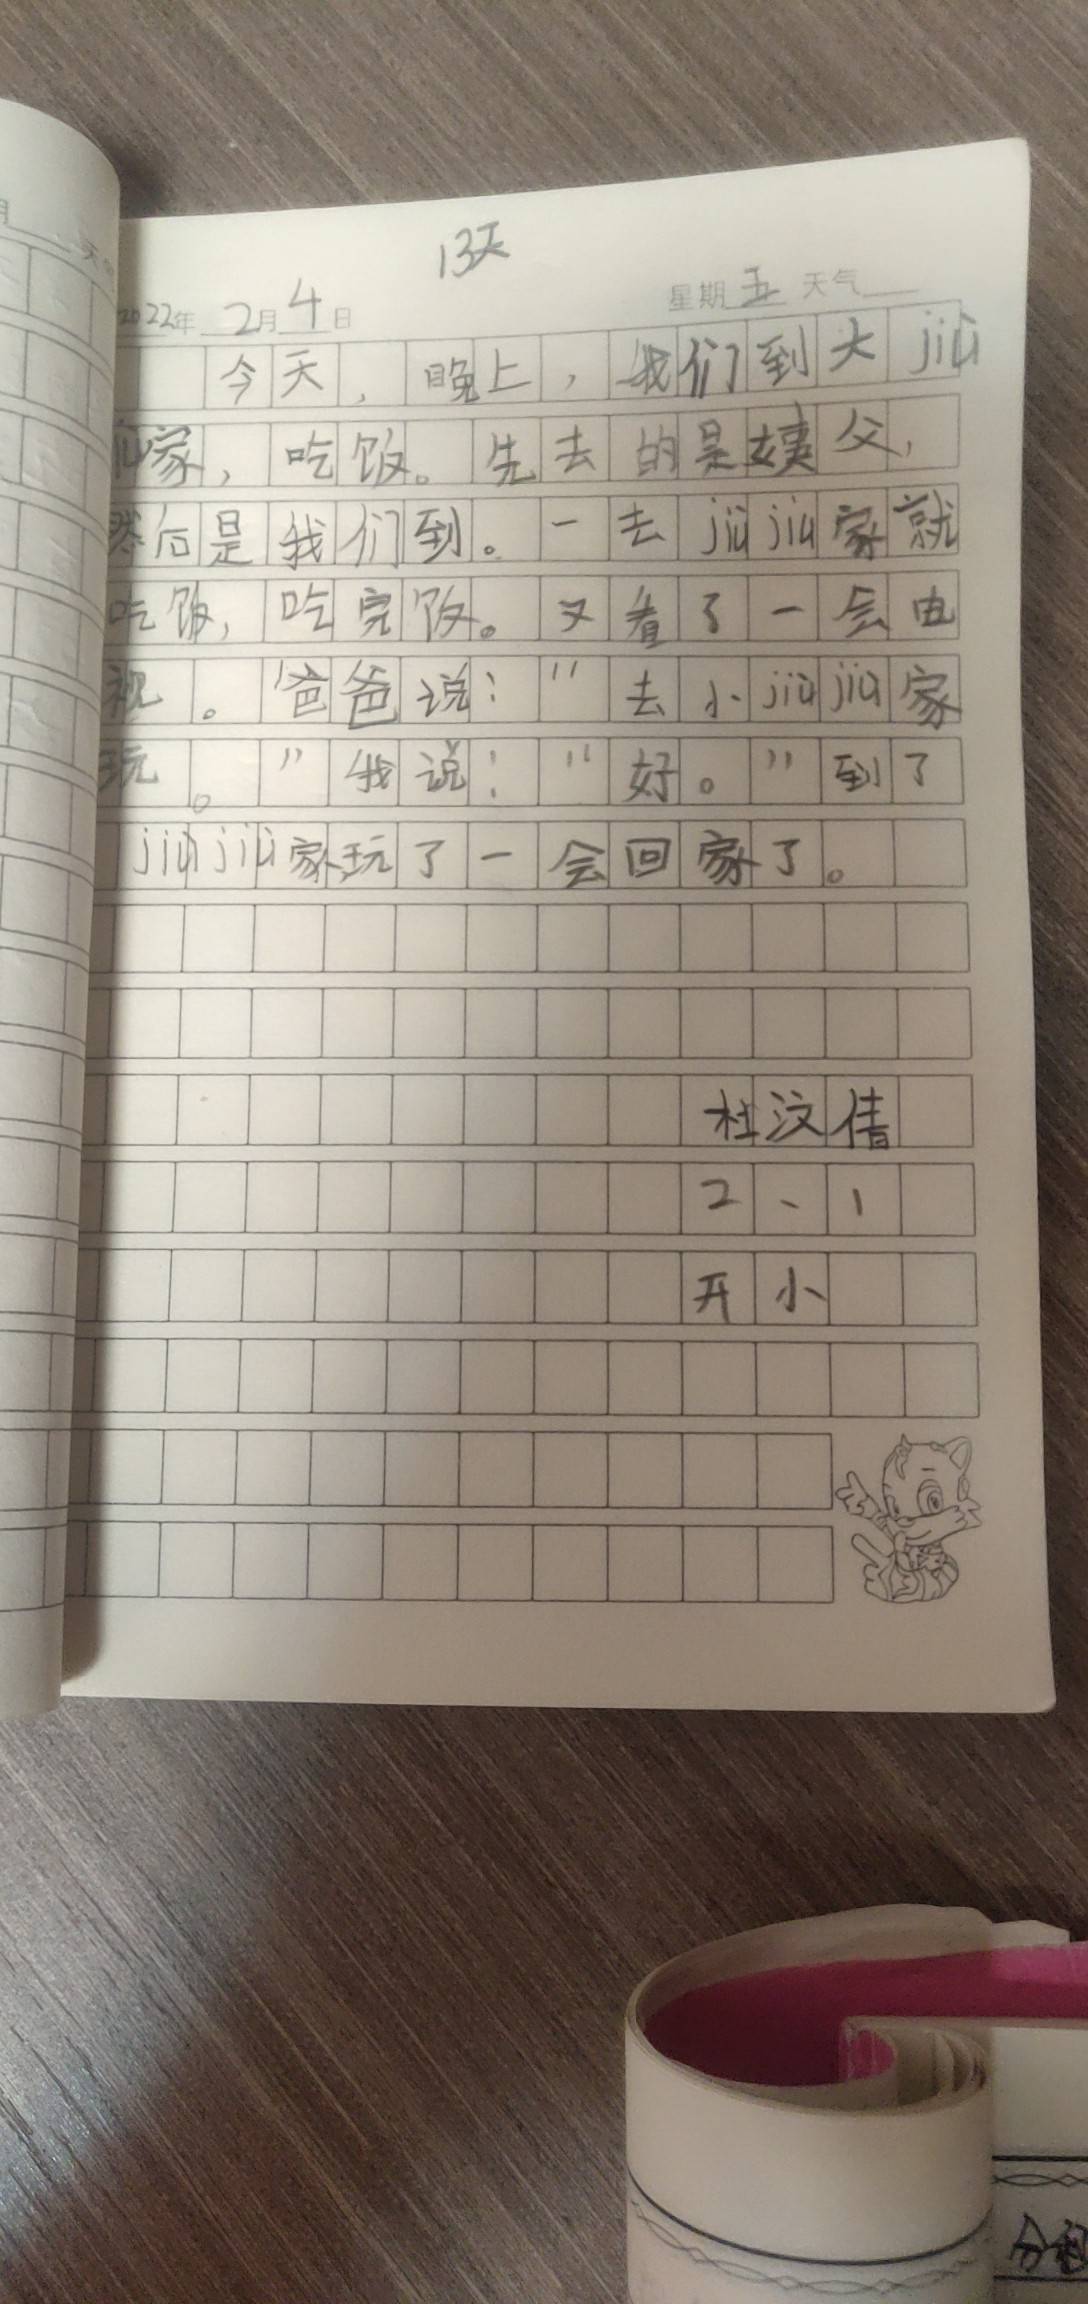 13天
2022年 2月 4日 星期 五 天气
今天,晚上,我们到大jiù
们家,吃饭。先去的是姨父,
然后是我们到。一去jiùjiu家就
吃饭,吃完饭。又看了一会电
视。"爸爸说:"去小jiùjiu家
玩。"我说:"好。"到了
jiùjiu家玩了一会回家了。
杜汶倩
2、1
开小